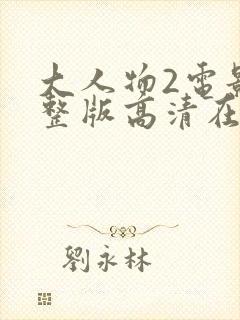 大人物2电影
整版高清在
劉永林